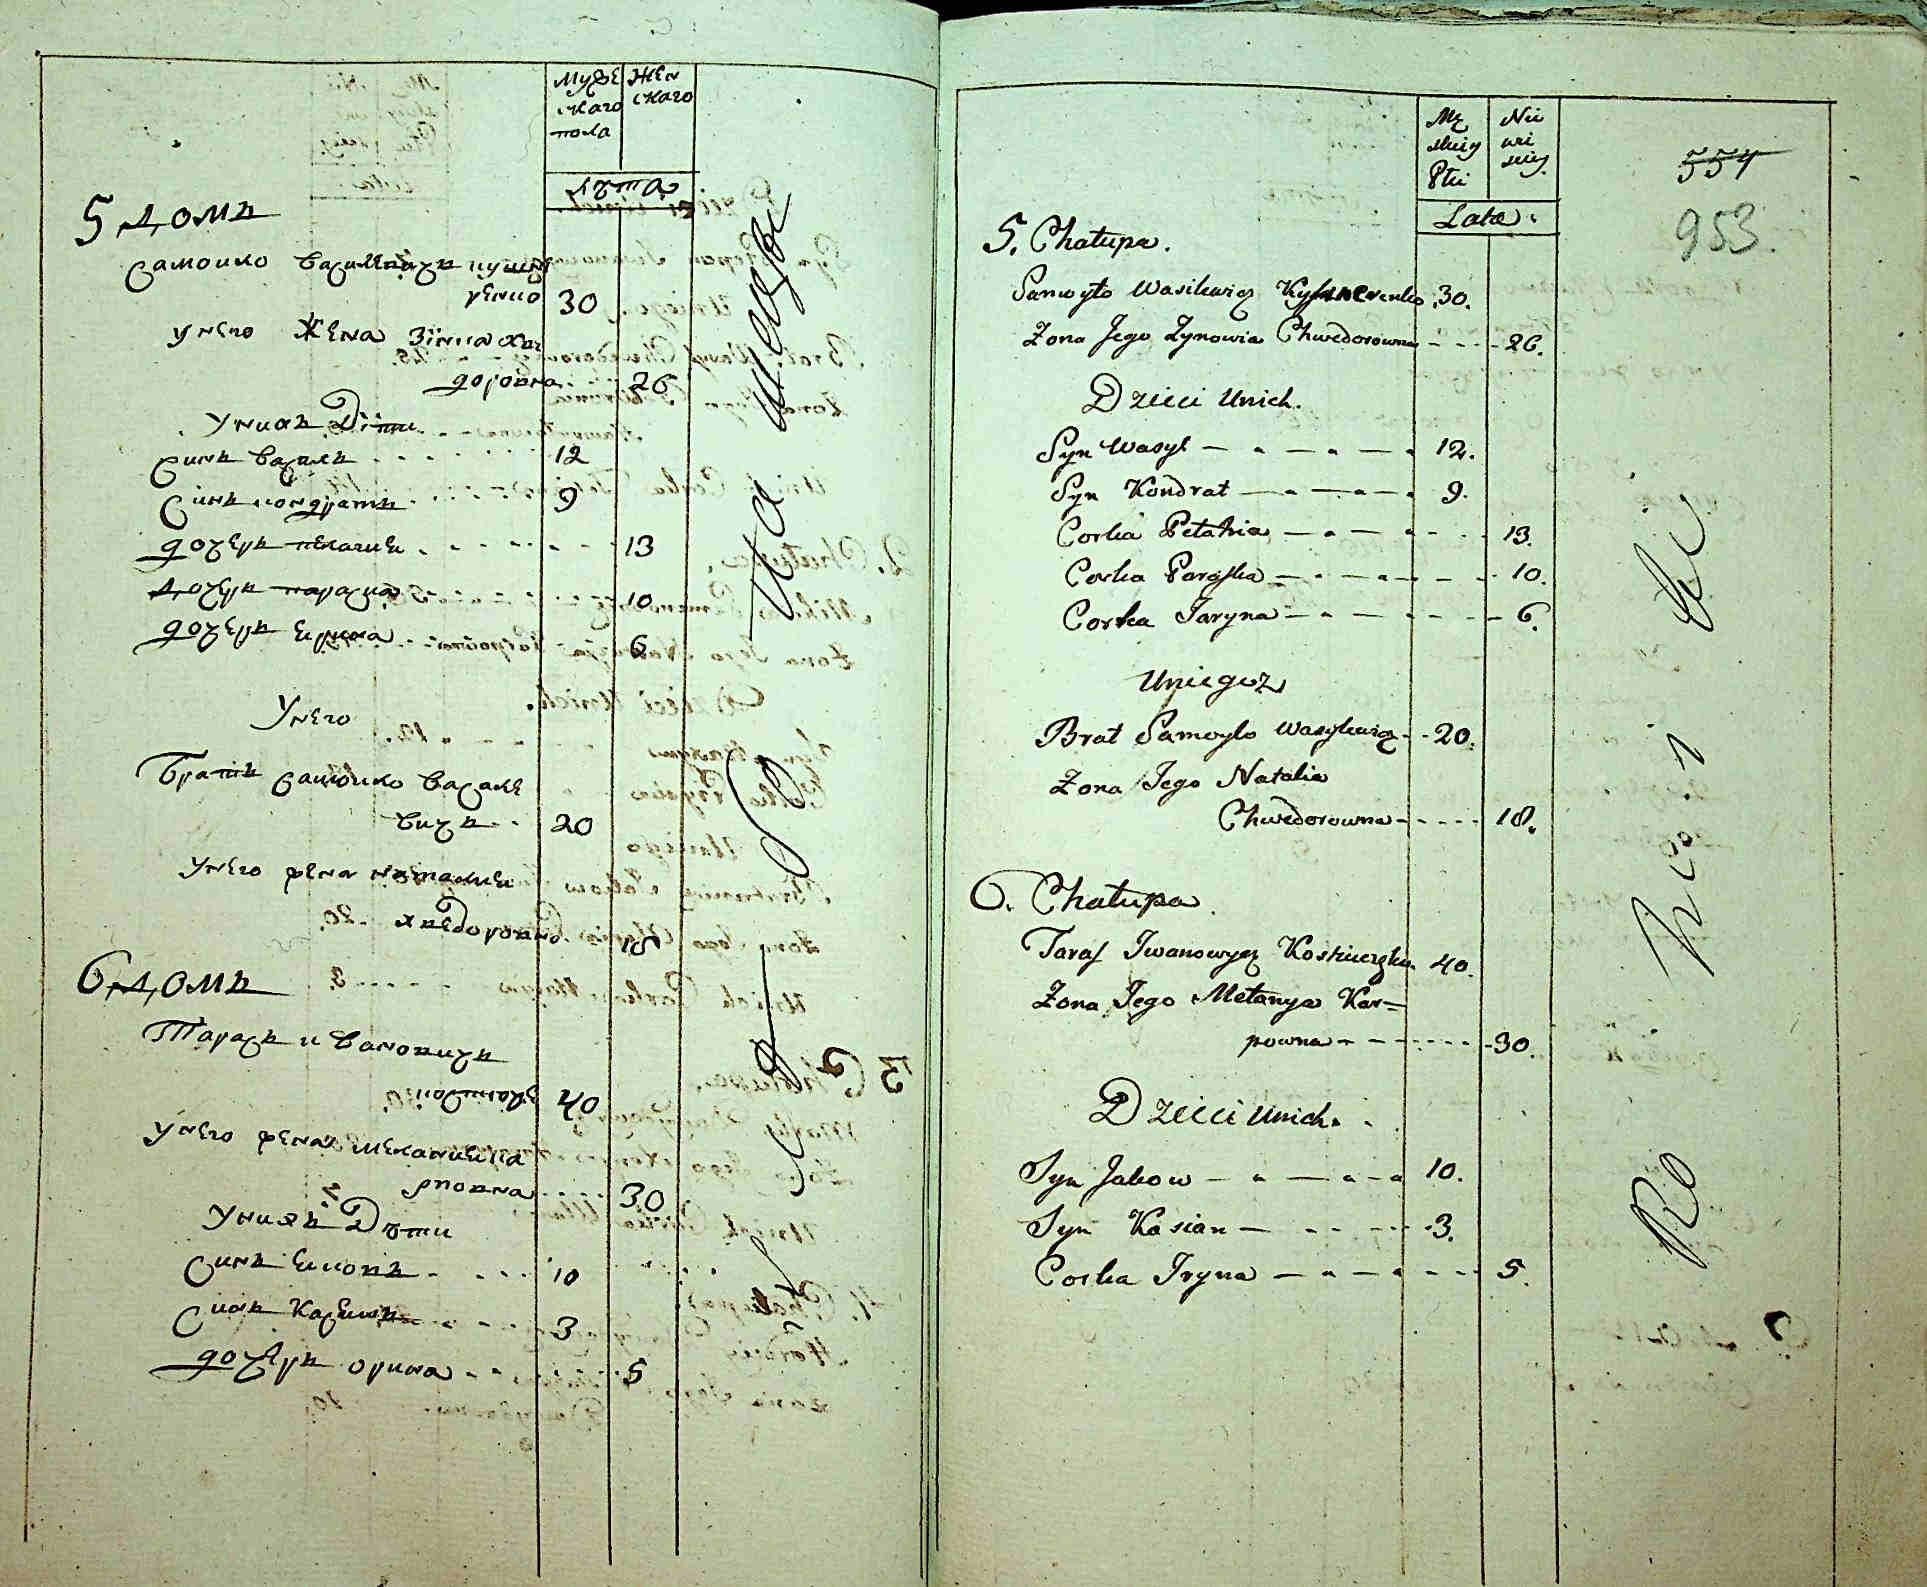 Муже
скаго
пола
Жен
скаго
Лѣта
5 Домъ
Самоило Василевичъ
30
Унего Жена Зѣнка Хве
доровна 26
Унихъ Дѣти
Синъ Василь 12
Синъ Кондратъ 9
дочерь Пелагиеи 13
Дочерь Параска 10
дочерь Ерина 6
Унего
Братъ Самоило Василе
вичъ 20
Унего жена Наталиеи
Хведоровна 18
6 Домъ
Тарасъ Ивановичъ
40
Унего жена Меланиеи Ка
рповна 30
Унихъ Дѣти
Синъ Еяковъ 10
Синъ Касиянъ 3
дочерь Орина 5
Mę
skiey
Płci
Nie
wei
skiey
Lata
554
953.
5. Chałupa.
Samoyło Wasilewicz 30.
Żona Jego Zynowia Chwedorowna 26.
Dzieci Unich.
Syn Wasyl 12.
Syn Kondrat 9.
Corka Pełahia 13.
Corka Paraska 10.
Corka Jaryna 6.
Uniegoż
Brat Samoyło Wasylewicz 20.
Żona Jego Natalia
Chwedorowna 18.
6. Chałupa
Taras Iwanowycz 40.
Żona Jego Mełanya Kar=
powna 30.
Dzieci Unich.
Syn Jakow 10.
Syn Kasian 3.
Corka Iryna 5.